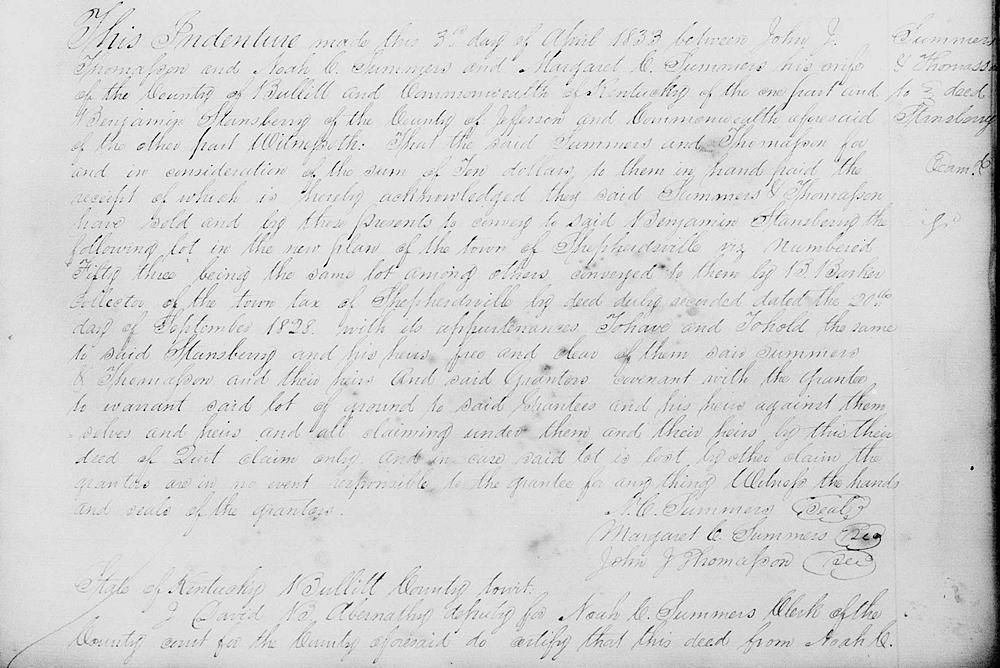 This Indenture made this 3rd day of April 1833 between John J.
Thomasson and Noah C. Summers and Margaret C. Summers his wife
of the County of Bullitt and Commonwealth of Kentucky of the one part and
Benjamin Stansberry of the County of Jefferson and Commonwealth aforesaid
of the other part Witnesseth: That the said Summers and Thomasson for
and in consideration of the sum of Ten dollars to them in hand paid the
receipt of which is hereby acknowledged they said Summers & Thomasson
have sold and by these presents to convey to said Benjamin Stansberry the
following lot in the new plan of the town of Shepherdsville viz numbered
Fifty three being the same lot among others conveyed to them by B. Barker
Collector of the town tax of Shepherdsville by deed duly recorded dated the 20th
day of September 1828. with its appurtenances To have and To hold the same
to said Stansberry and his heirs free and clear of them said Summers
& Thomasson and their heirs And said Grantors covenant with the grantee
to warrant said lot of ground to said grantees and his heirs against them
selves and heirs and all claiming under them and their heirs by this their
deed of Quit claim only and in case said lot is lost by other claim the
grantors are in no event responsible to the grantee for any thing Witness the hands
and seals of the grantors.
N.C. Summers Seal
Margaret C. Summers Seal
John J Thomasson Seal
State of Kentucky Bullitt County towit:
I David B. Abernathy deputy for Noah C. Summers Clerk of the
County court for the County aforesaid do certify that this deed from Noah C.
Summers
& Thomass
to deed
Stansberry
Exam.d